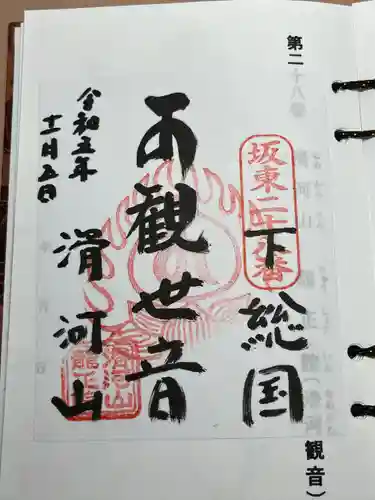 第二十八番
観音）
坂東二十八番
下総国
観世音
滑河山
令和五年
十一月五日